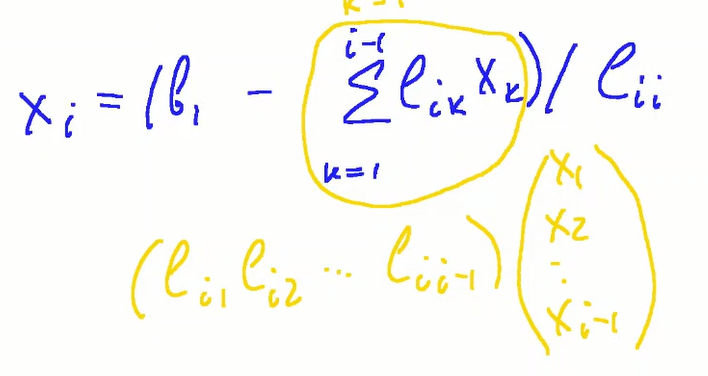 k=1
x_i = (b_1 - \sum_{k=1}^{i-1} l_{ik} x_k) / l_{ii}
(l_{i1} l_{i2} ... l_{ii-1}) (x_1
x_2
⋮
x_{i-1})